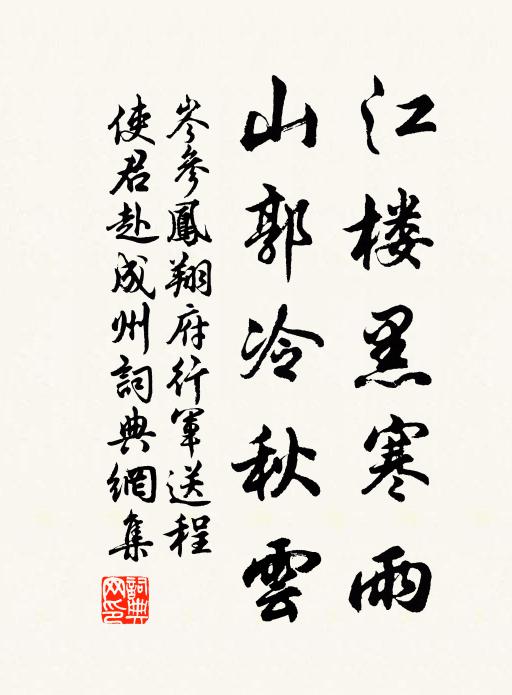 江楼黑寒雨
山郭冷秋雲
岑參鳳翔府行軍送程
使君赴成州詞典網集
詞典
网印